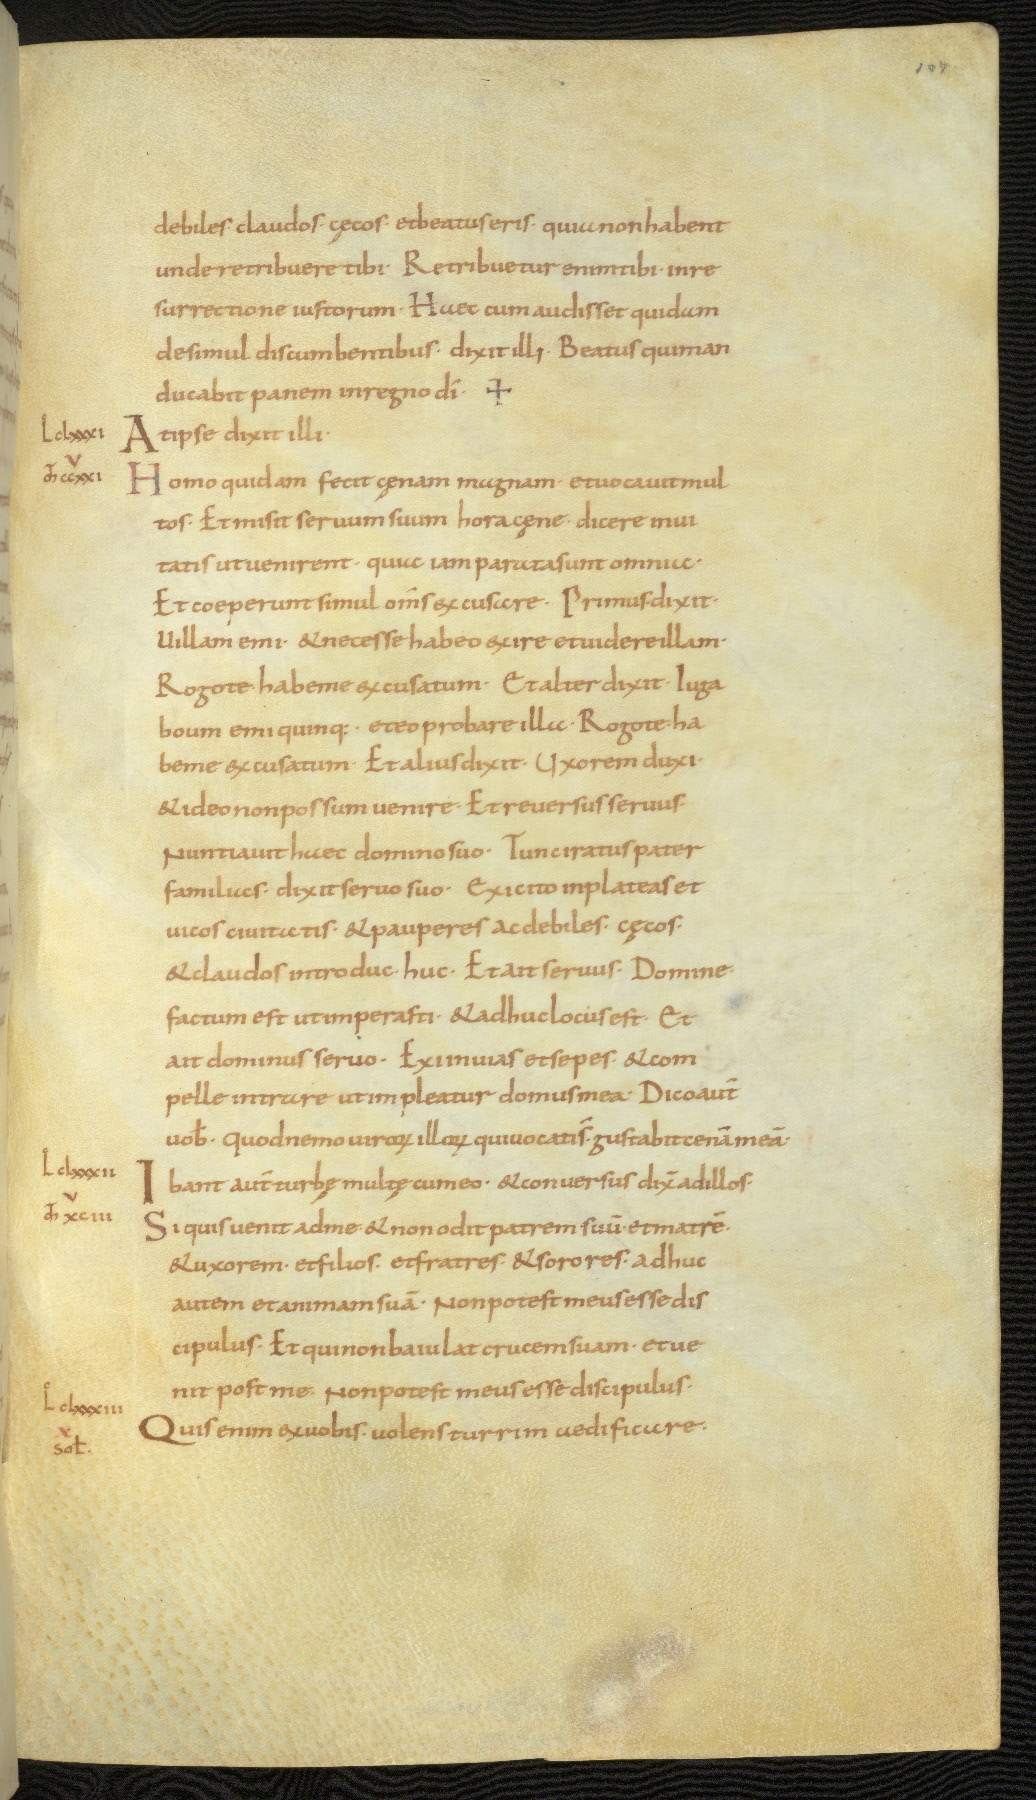 107
debiles· claudos· cęcos· et beatus eris· quia non habent
unde retribuere tibi· Retribuetur enim tibi· in re
surrectione iustorum· Haec cum audisset quidam
de simul discumbentibus· dixit illi· Beatus qui man
ducabit panem in regno dī· +
L clxxxi At ipse dixit illi·
m̄ ccxxi v Homo quidam fecit cęnam magnam· et uocauit mul
tos· Et misit seruum suum hora cęne· dicere inui
tatis ut uenirent· quia iam parata sunt omnia·
Et coeperunt simul om̄s excusare· Primus dixit·
Uillam emi· & necesse habeo exire et uidere illam·
Rogo te· habe me excusatum· Et alter dixit· Iuga
boum emi quinq:· et eo probare illa· Rogo te· ha
be me excusatum· Et alius dixit· Uxorem duxi·
& ideo non possum uenire· Et reuersus seruus·
Nuntiauit haec domino suo· Tunc iratus pater
familias· dixit seruo suo· Exi cito in plateas et
uicos ciuitatis· & pauperes ac debiles· cęcos·
& claudos introduc· huc· Et ait seruus· Domine·
factum est ut imperasti· & adhuc locus est· Et
ait dominus seruo· Exi in uias et sepes· & com
pelle intrare ut impleatur domus mea· Dico aut̄
uob̄· quod nemo uiroꝝ illoꝝ qui uocati s̄· gustabit cenā meā·
L clxxxii Ibant aut̄ turbę multę cum eo· & conuersus dix̄ ad illos·
m̄ xciii v Si quis uenit ad me· & non odit patrem suū· et matrē·
& uxorem· et filios· et fratres· & sorores· adhuc
autem et animam suā· Non potest meus esse dis
cipulus· Et qui non baiulat crucem suam· et ue
nit post me· Non potest meus esse discipulus·
L clxxxiii Quis enim ex uobis· uolens turrim aedificare·
sol̄· v